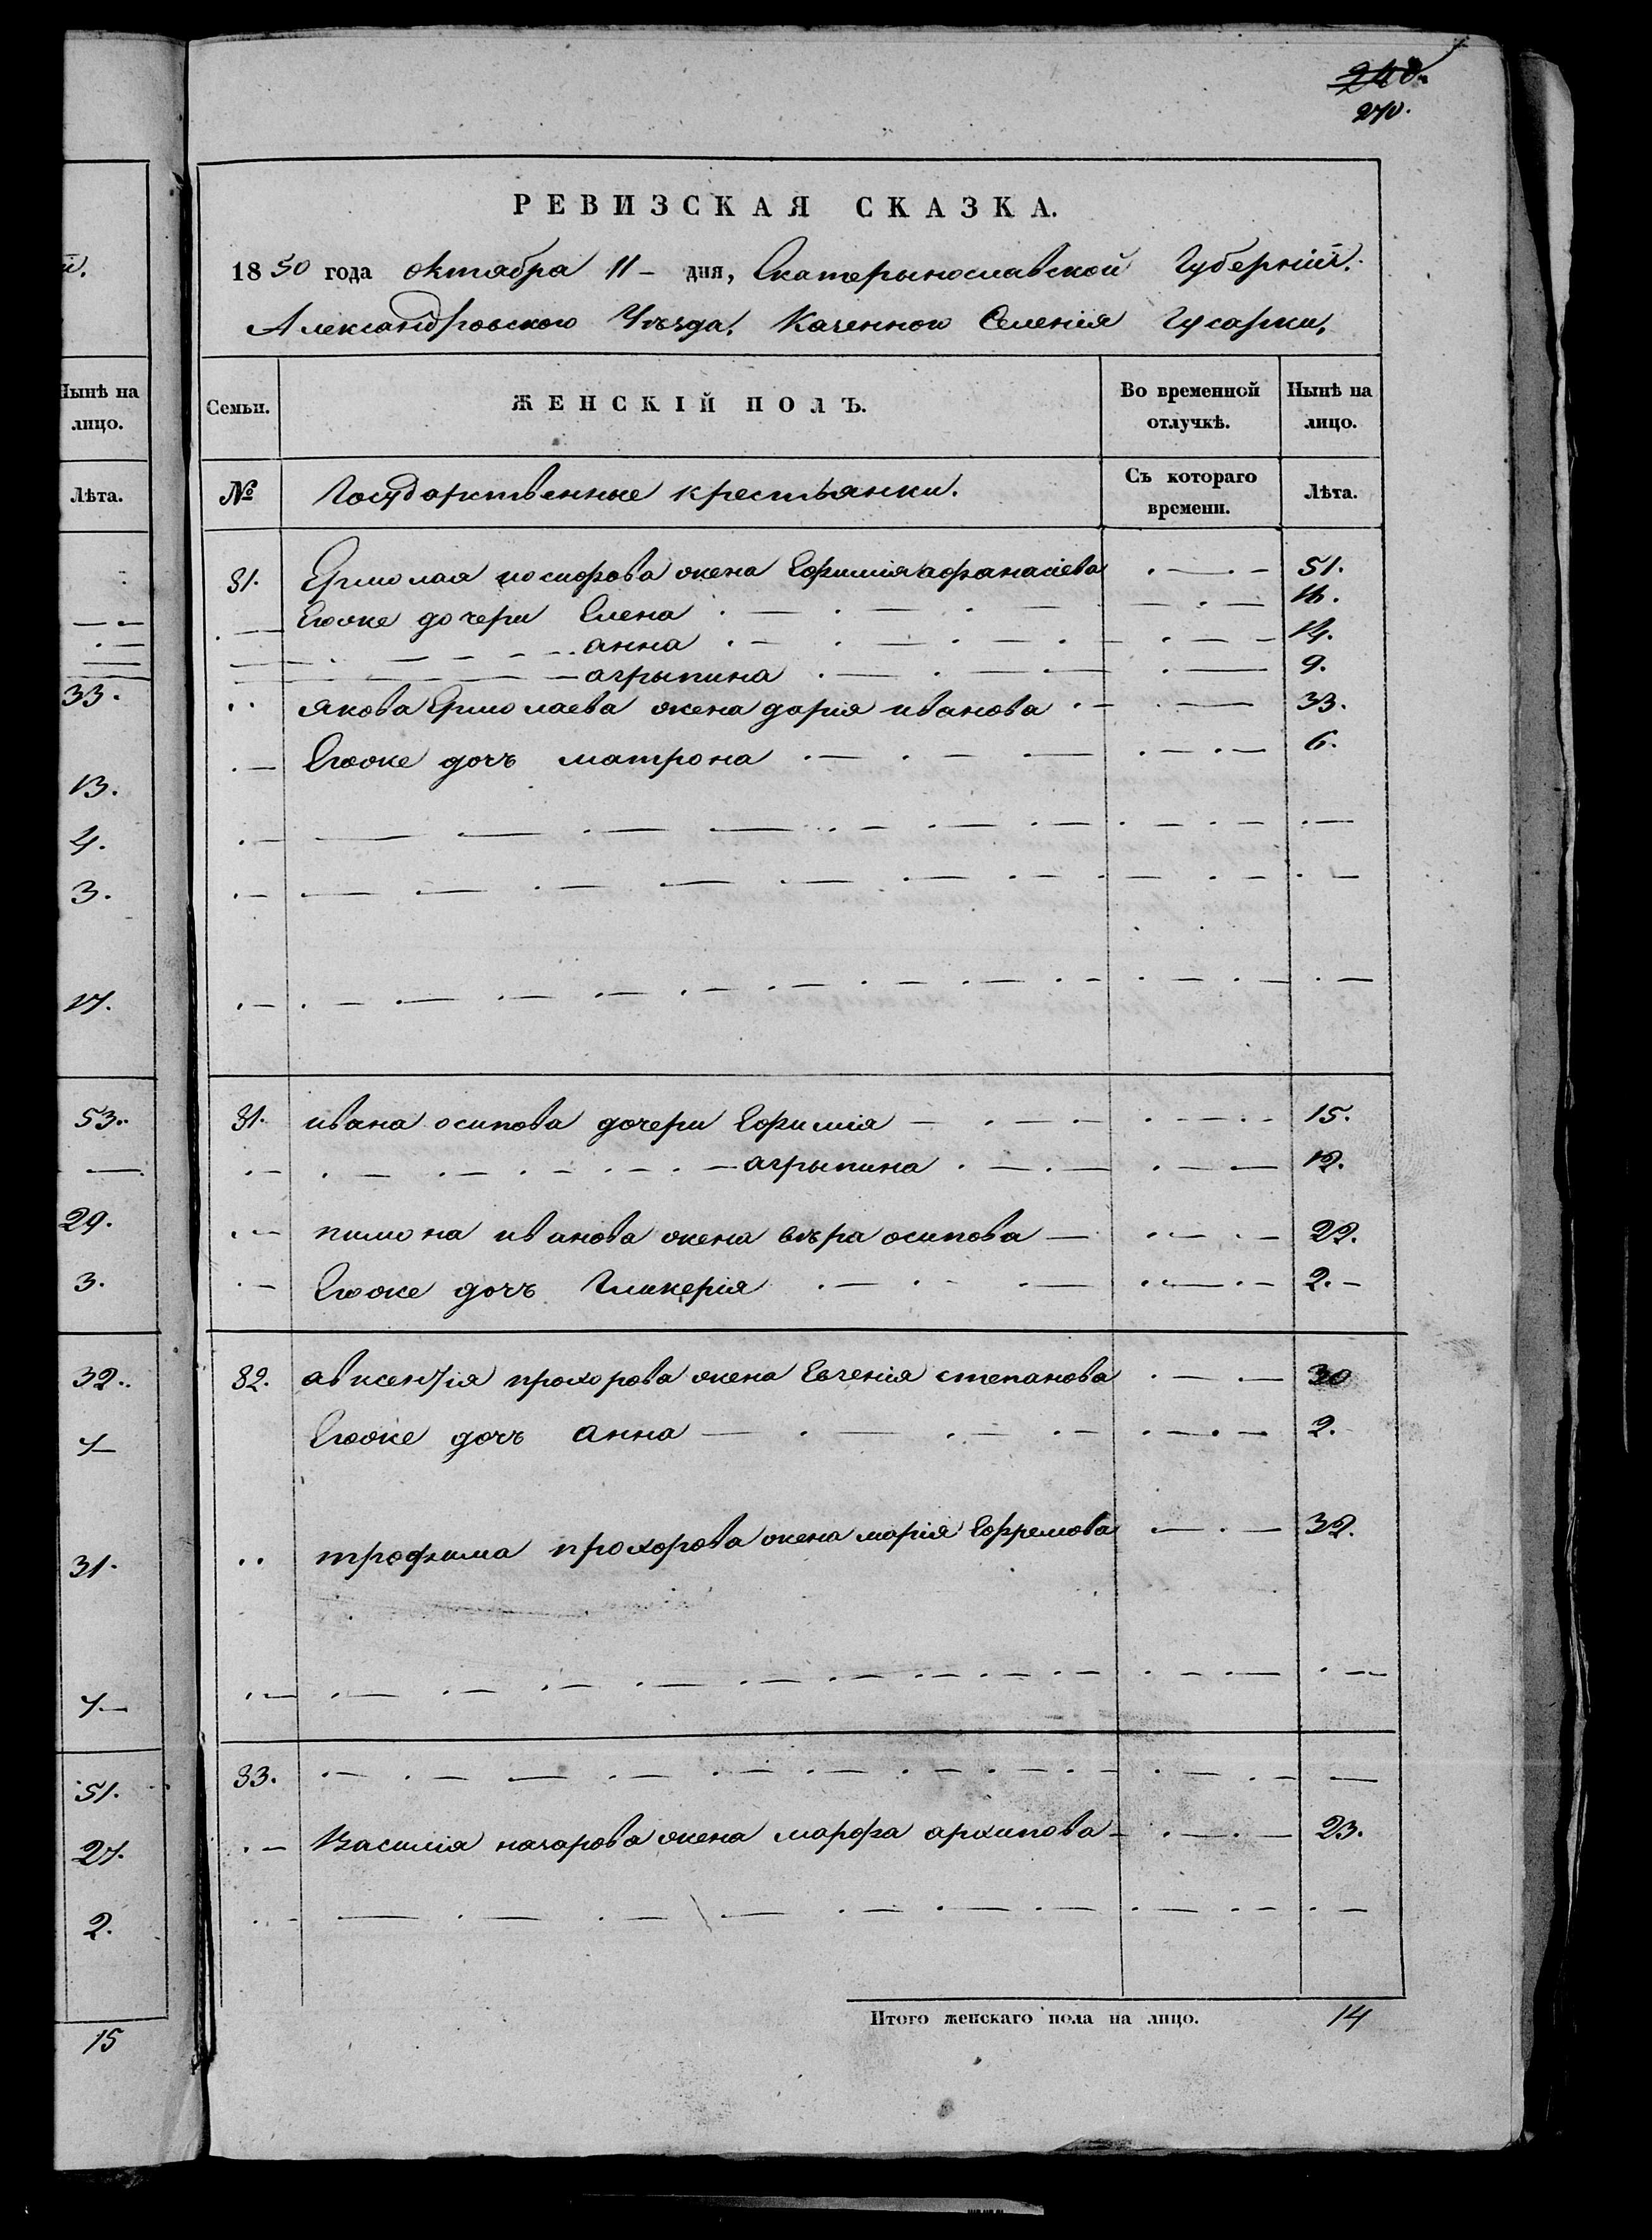 240.
270.
й.
РЕВИЗСКАЯ СКАЗКА.
1850 года октября 11- дня, Екатерынославской Губерніи.
Александровского Уѣзда. Казенного Селенія Гусарки,
Нынѣ на лицо.
Лѣта.
33.
13.
4.
3.
17.
53.
29.
3.
32.
31.
51.
27.
2.
15
Семьи. ЖЕНСКІЙ ПОЛЪ. Во временной отлучкѣ. Нынѣ на лицо.
№ Государственные крестьянки. Съ котораго времени. Лѣта.
81. Ермолая жена Ефимія афанасіева 51.
Егоже дочери Елена 16.
анна 14.
агрыпина 9.
якова Ермолаева жена дарія иванова 33.
Егоже дочъ матрона 6.
81. ивана осипова дочери Ефимія 15.
агрыпина 12.
пимона иванова жена вѣра осипова 22.
Егоже дочъ Гликерія 2.
82. авксентія прохорова жена Евгенія степанова 30
Егоже дочъ анна 2.
трофима прохорова жена марія Ефремова 32.
83.
Василія назарова жена марфа архипова 23.
Итого женскаго пола на лицо. 14